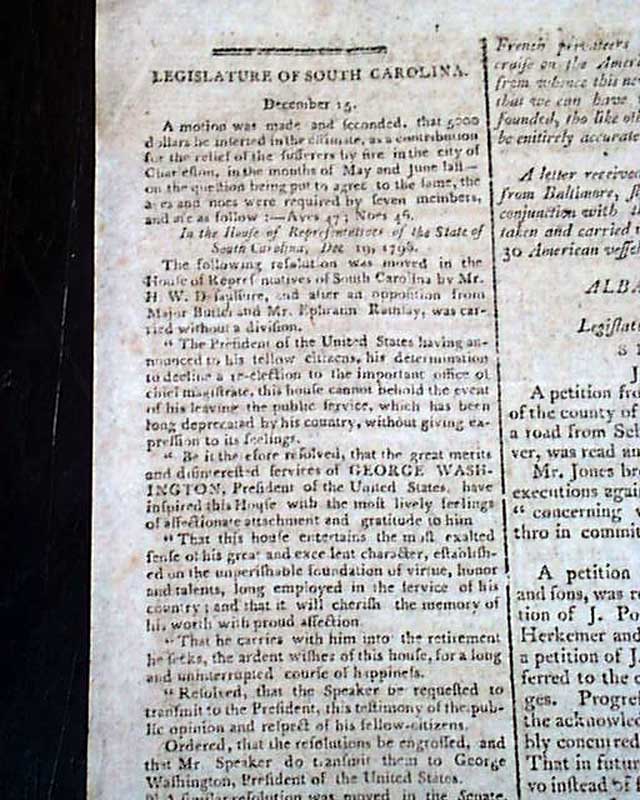 LEGISLATURE OF SOUTH CAROLINA.
December 15.
A motion was made and seconded, that 5000
dollars be inserted in the estimate, as a contribution
for the relief of the sufferers by fire in the city of
Charleston, in the months of May and June last—
on the question being put to agree to the same, the
ayes and noes were required by seven members,
and are as follow :—Ayes 47; Noes 46.
In the House of Representatives of the State of
South Carolina, Dec 19, 1796.
The following resolution was moved in the
House of Representatives of South Carolina by Mr.
H W. Desaussure, and after an opposition from
Major Butler and Mr. Ephraim Ramsay, was car-
ried without a division.
" The President of the United States having an-
nounced to his fellow citizens, his determination
to decline a re-election to the important office of
chief magistrate, this house cannot behold the event
of his leaving the public service, which has been
long deprecated by his country, without giving ex-
pression to its feelings.
" Be it therefore resolved, that the great merits
and disinterested services of GEORGE WASH-
INGTON, President of the United States, have
inspired this House with the most lively feelings
of affectionate attachment and gratitude to him
" That this house entertains the most exalted
sense of his great and excellent character, establish-
ed on the unperishable foundation of virtue, honor
and talents, long employed in the service of his
country ; and that it will cherish the memory of
his worth with proud affection
" That he carries with him into the retirement
he seeks, the ardent wishes of this house, for a long
and uninterrupted course of happiness.
" Resolved, that the Speaker be requested to
transmit to the President, this testimony of the pub-
lic opinion and respect of his fellow-citizens.
Ordered, that the resolutions be engrossed, and
that Mr. Speaker do transmit them to George
Washington, President of the United States.
A similar resolution was moved in the Senate,
French privateers
cruise on the Ameri
from whence this ne
that we can have
founded, tho like oth
be entirely accurate
A letter received
from Baltimore,
conjunction with
taken and carried
30 American vessel
ALBA
Legislat
A petition fro
of the county of
a road from Sch
ver, was read an
Mr. Jones bro
executions again
" concerning
thro in committ
A petition
and sons, was re
tion of J. Po
Herkemer and
a petition of J.
ferred to the c
ges. Progre
the acknowle
bly concurred
That in futur
vo instead of